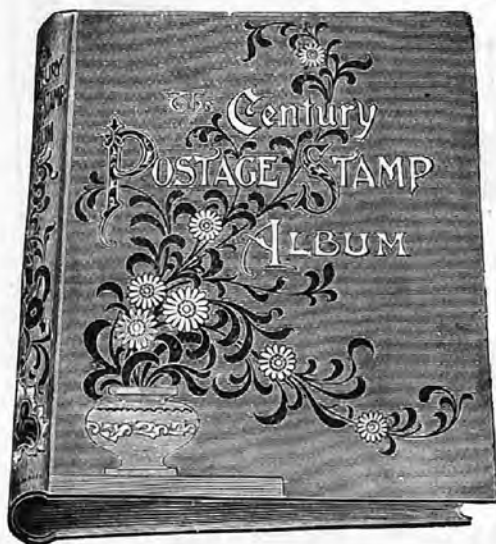 The Century
POSTAGE STAMP
ALBUM